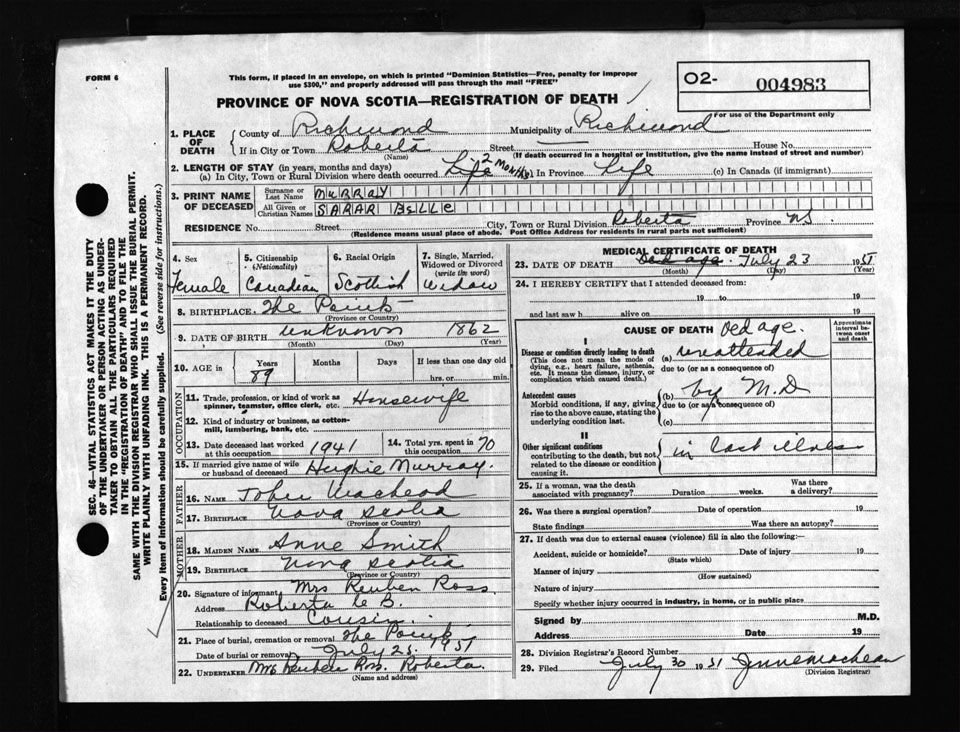 FORM 6
This form, if placed in an envelope, on which is printed "Dominion Statistics—Free, penalty for improper
use $300," and properly addressed will pass through the mail "FREE"
O2- 004983
For use of the Department only
PROVINCE OF NOVA SCOTIA—REGISTRATION OF DEATH
1. PLACE OF DEATH
County of Richmond Municipality of Richmond
If in City or Town Roberta Street House No.
(Name) (If death occurred in a hospital or institution, give the name instead of street and number)
2. LENGTH OF STAY (in years, months and days)
(a) In City, Town or Rural Division where death occurred Life 2 Months (b) In Province Life (c) In Canada (if immigrant)
3. PRINT NAME OF DECEASED
Surname or Last Name MURRAY
All Given or Christian Names SARAR BELLE
RESIDENCE No. Street City, Town or Rural Division Roberta Province N.S.
(Residence means usual place of abode. Post Office Address for residents in rural parts not sufficient)
4. Sex Female
5. Citizenship (Nationality) Canadian
6. Racial Origin Scottish
7. Single, Married, Widowed or Divorced (write the word) Widow
8. BIRTHPLACE The Points
(Province or Country)
9. DATE OF BIRTH unknown 1862
(Month) (Day) (Year)
10. AGE in Years 89 Months Days If less than one day old hrs. or min.
OCCUPATION
11. Trade, profession, or kind of work as spinner, teamster, office clerk, etc. Housewife
12. Kind of industry or business, as cotton-mill, lumbering, bank, etc.
13. Date deceased last worked at this occupation 1941
14. Total yrs. spent in this occupation 70
15. If married give name of wife or husband of deceased Hughie Murray.
FATHER
16. NAME John Macleod
17. BIRTHPLACE Nova Scotia
(Province or Country)
MOTHER
18. MAIDEN NAME Anne Smith
19. BIRTHPLACE Nova Scotia
(Province or Country)
20. Signature of informant Mrs Reuben Ross.
Address Roberta C B.
Relationship to deceased Cousin.
21. Place of burial, cremation or removal The Points
Date of burial or removal July 25. 1951
22. UNDERTAKER Mrs Reuben Ross. Roberta.
(Name and address)
MEDICAL CERTIFICATE OF DEATH
23. DATE OF DEATH Old age. July 23 1951
(Month) (Day) (Year)
24. I HEREBY CERTIFY that I attended deceased from:
19 to 19
and last saw h alive on 19
CAUSE OF DEATH Old age.
Approximate interval between onset and death
I
Disease or condition directly leading to death
(This does not mean the mode of dying, e.g., heart failure, asthenia, etc. It means the disease, injury, or complication which caused death.)
(a) unattended
due to (or as a consequence of)
Antecedent causes
Morbid conditions, if any, giving rise to the above cause, stating the underlying condition last.
(b) by M.D
due to (or as a consequence of)
(c)
II
Other significant conditions
contributing to the death, but not related to the disease or condition causing it.
in last illness
25. If a woman, was the death associated with pregnancy? Duration weeks. Was there a delivery?
26. Was there a surgical operation? Date of operation 19
State findings Was there an autopsy?
27. If death was due to external causes (violence) fill in also the following:—
Accident, suicide or homicide? Date of injury 19
(State which)
Manner of injury
(How sustained)
Nature of injury
Specify whether injury occurred in industry, in home, or in public place
Signed by M.D.
Address Date 19
28. Division Registrar's Record Number
29. Filed July 30 1951
(Division Registrar)
SEC. 46—VITAL STATISTICS ACT MAKES IT THE DUTY
OF THE UNDERTAKER OR PERSON ACTING AS UNDER-
TAKER TO OBTAIN ALL THE PARTICULARS REQUIRED
IN THE "REGISTRATION OF DEATH" AND TO FILE THE
SAME WITH THE DIVISION REGISTRAR WHO SHALL ISSUE THE BURIAL PERMIT.
WRITE PLAINLY WITH UNFADING INK. THIS IS A PERMANENT RECORD.
Every item of Information should be carefully supplied. (See reverse side for instructions.)